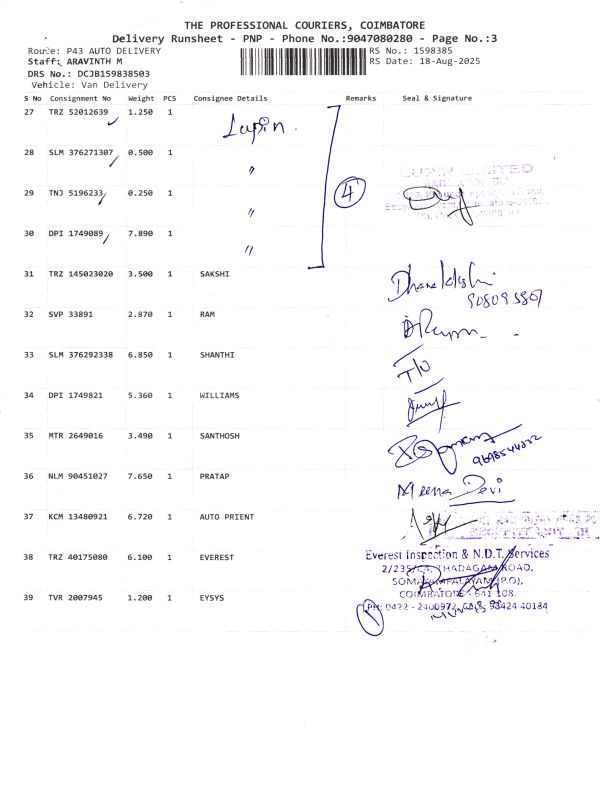 THE PROFESSIONAL COURIERS, COIMBATORE
Delivery Runsheet - PNP - Phone No.:9047080280 - Page No.:3
Route: P43 AUTO DELIVERY RS No.: 1598385
Staff: ARAVINTH M RS Date: 18-Aug-2025
DRS No.: DCJB159838503
Vehicle: Van Delivery
S No Consignment No Weight PCS Consignee Details Remarks Seal & Signature
27 TRZ 52012639 1.250 1 Lupin
28 SLM 376271307 0.500 1 〃
29 TNJ 5196233 0.250 1 〃 4
30 DPI 1749089 7.890 1 〃
31 TRZ 145023020 3.500 1 SAKSHI
32 SVP 33891 2.870 1 RAM
33 SLM 376292338 6.850 1 SHANTHI
34 DPI 1749821 5.360 1 WILLIAMS
35 MTR 2649016 3.490 1 SANTHOSH
36 NLM 90451027 7.650 1 PRATAP Meena Devi
37 KCM 13480921 6.720 1 AUTO PRIENT
38 TRZ 40175080 6.100 1 EVEREST
Everest Inspection & N.D.T. Services
2/235/C4, THADAGAM ROAD,
SOMAYAMPALAYAM (P.O),
COIMBATORE - 641 108.
39 TVR 2007945 1.200 1 EYSYS
PH: 0422 - 2400972, Cell: 98424 40184